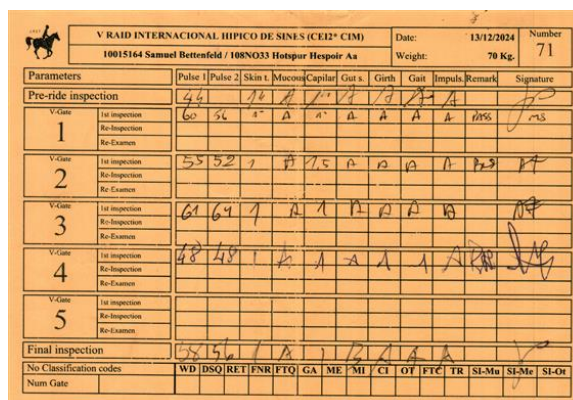 V RAID INTERNACIONAL HIPICO DE SINES (CEI2* CIM) Date: 13/12/2024 Number
10015164 Samuel Bettenfeld / 108NO33 Hotspur Hespoir Aa Weight: 70 Kg. 71
Parameters Pulse 1 Pulse 2 Skin t. Mucous Capilar Gut s. Girth Gait Impuls. Remark Signature
Pre-ride inspection 44 1" A A A
V-Gate 1 1st inspection 60 56 1" A 1" A A A A PASS MS
Re-Inspection
Re-Examen
V-Gate 2 1st inspection 55 52 1 A 1,5 A A A A
Re-Inspection
Re-Examen
V-Gate 3 1st inspection 61 64 1 A 1 A A A A
Re-Inspection
Re-Examen
V-Gate 4 1st inspection 48 48 1 A 1 A 1 1 A
Re-Inspection
Re-Examen
V-Gate 5 1st inspection
Re-Inspection
Re-Examen
Final inspection 58 56 1 A 1 B A A A
No Classification codes WD DSQ RET FNR FTQ GA ME MI CI OT FTC TR SI-Mu SI-Me SI-Ot
Num Gate